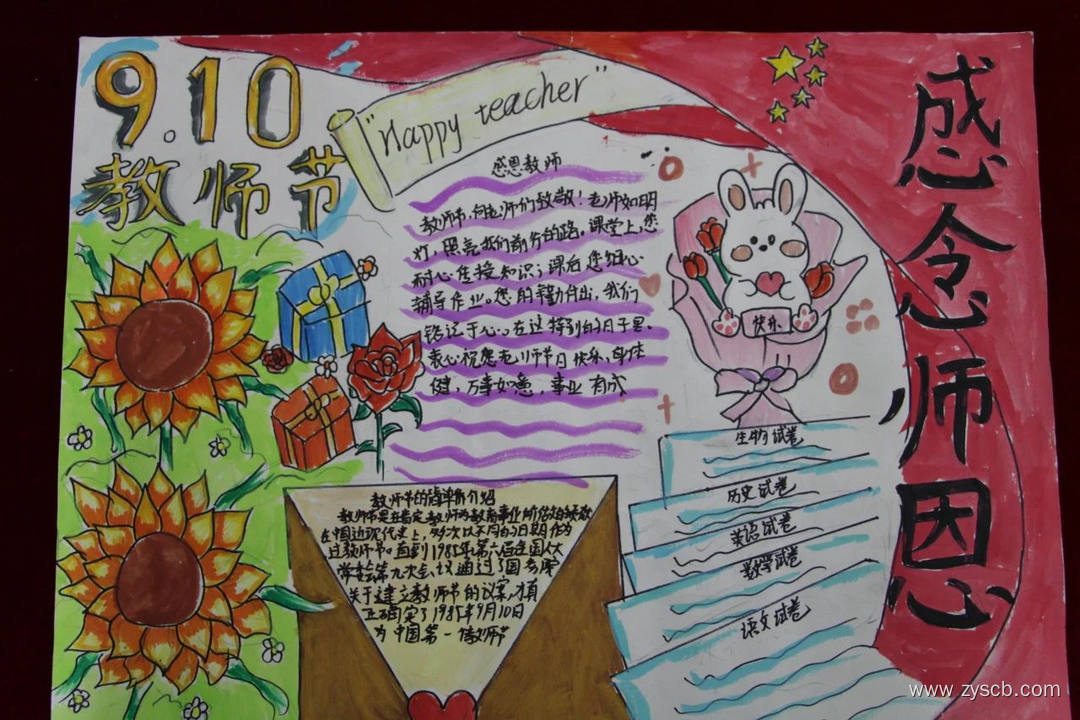 9.10
教师节
"Happy teacher"
感念师恩
感恩教师
教师节,向老师们致敬!老师如明
灯,照亮我们前方的路。课堂上,您
耐心传授知识;课后您细心
辅导作业。您的辛勤付出,我们
铭记于心。在这特别的日子里。
衷心祝愿老师节日快乐,身体
健,万事如意,事业有成
快乐
生物试卷
历史试卷
英语试卷
数学试卷
语文试卷
教师节的简单介绍
教师节是在肯定教师为教育事业所做的贡献
在中国近现代史上,多次以不同的日期作为
过教师节。直到1985年第六届全国人大
常委会第九次会议通过了国务院
关于建立教师节的议案,才真
正确定了1985年9月10日
为中国第一个教师节
www.zyscb.com